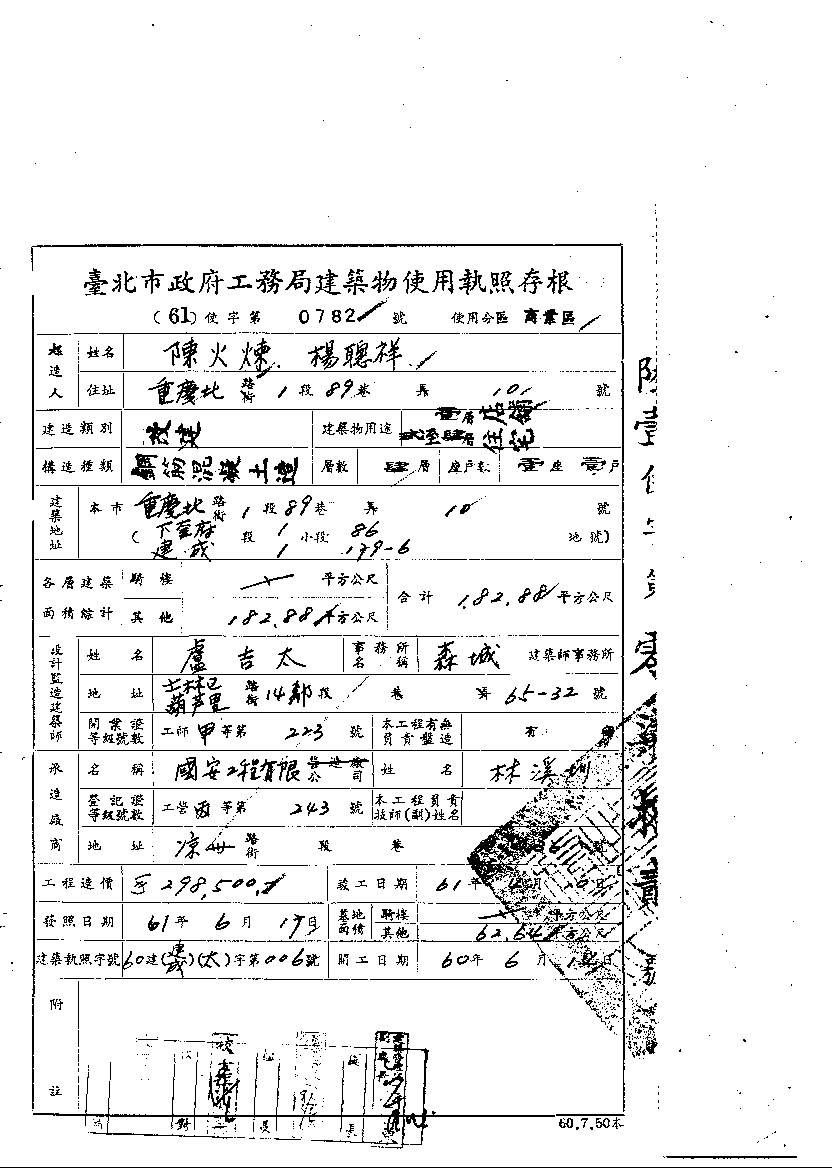 臺北市政府工務局建築物使用執照存根
(61)使字第 0782 號 使用分區 商業區
起造人 姓名 陳火煉、楊聰祥
住址 重慶北路街 1 段 89 巷 弄 10 號
建造類別 建築物用途 壹層店舖 貳至肆層住宅
構造種類 鋼筋混凝土造 層數 肆層 座戶數 壹座 壹戶
建築地址 本市 重慶北路街 1 段 89 巷 弄 10 號
( 下奎府 段 1 小段 86 地號)
建成 1 179-6
各層建築面積綜計 騎樓 平方公尺 合計 182.88 平方公尺
其他 182.88 平方公尺
設計監造建築師 姓名 盧吉太 事務所名稱 森城 建築師事務所
地址 士林區葫芦里 路街 14鄰 段 巷 弄 65-32 號
開業證等級號數 工師 甲 等第 223 號 本工程有無負責監造 有
承造廠商 名稱 國安工程有限 營造廠公司 姓名 林溪圳
登記證等級號數 工營 丙 等第 243 號 本工程負責技師(副)姓名
地址 涼州 路街 段 巷 號
工程造價 298,500 竣工日期 61年 月 日
發照日期 61年 6月 17日 基地面積 騎樓 平方公尺
其他 62.64 平方公尺
建築執照字號 60建(建成)(太)字第006號 開工日期 60年 6月 日
附註
60.7.50本